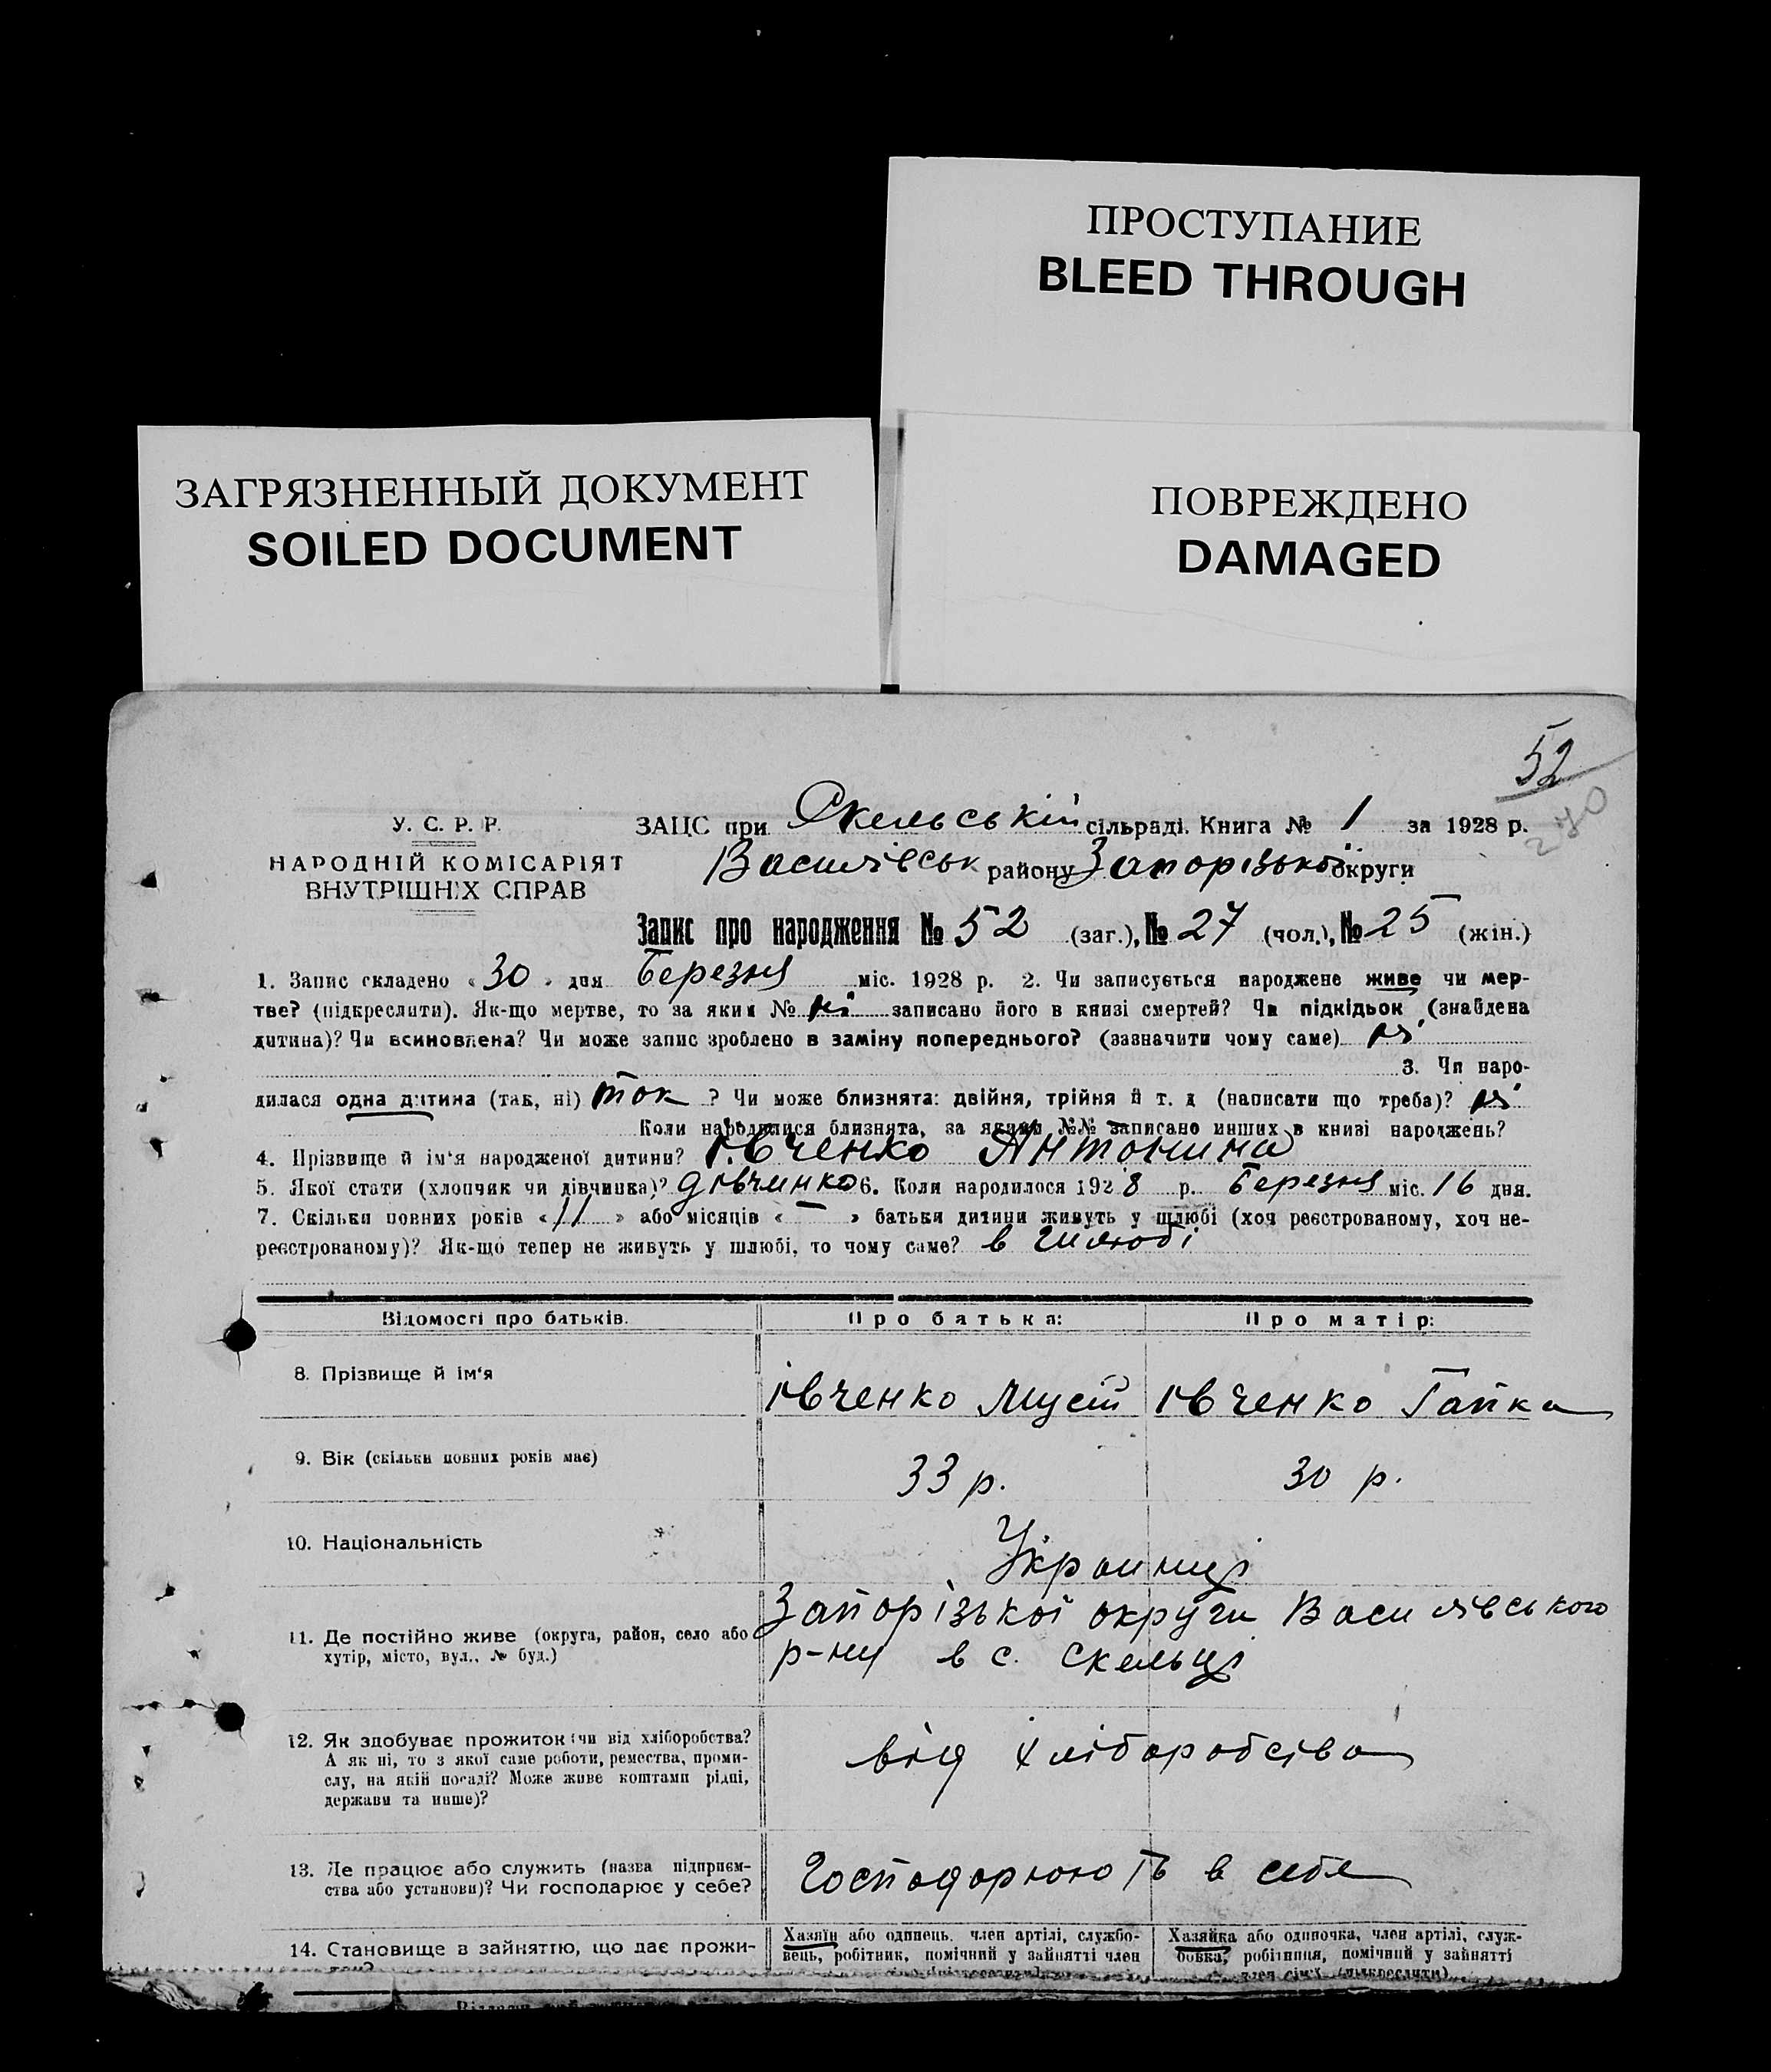 ПРОСТУПАНИЕ
BLEED THROUGH
ЗАГРЯЗНЕННЫЙ ДОКУМЕНТ
SOILED DOCUMENT
ПОВРЕЖДЕНО
DAMAGED
52
270
У. С. Р. Р.
НАРОДНІЙ КОМІСАРІЯТ
ВНУТРІШНІХ СПРАВ
ЗАЦС при Скельській сільраді. Книга № 1 за 1928 р.
Василівськ району Запорізької округи
Запис про народження № 52 (заг.), № 27 (чол.), № 25 (жін.)
1. Запис складено «30» дня Березня міс. 1928 р. 2. Чи записується народжене живе чи мер-
тве? (підкреслити). Як-що мертве, то за яким № ні записано його в книзі смертей? Чи підкідьок (знайдена
дитина)? Чи всиновлена? Чи може запис зроблено в заміну попереднього? (зазначити чому саме) ні
3. Чи наро-
дилася одна дитина (так, ні) так ? Чи може близнята: двійня, трійня й т. д (написати що треба)? ні
Коли народилися близнята, за якими №№ записано инших в книзі народжень?
4. Прізвище й ім'я народженої дитини? Івченко Антонина
5. Якої стати (хлопчик чи дівчинка)? дівчинка 6. Коли народилося 1928 р. Березня міс. 16 дня.
7. Скільки повних років «11» або місяців «—» батьки дитини живуть у шлюбі (хоч реєстрованому, хоч не-
реєстрованому)? Як-що тепер не живуть у шлюбі, то чому саме? в шлюбі
Відомості про батьків. Про батька: Про матір:
8. Прізвище й ім'я Івченко Мусій Івченко Гапка
9. Вік (скільки повних років має) 33 р. 30 р.
10. Національність Украинці
11. Де постійно живе (округа, район, село або
хутір, місто, вул., № буд.)
Запорізької округи Василівського
р-ну в с. Скельці
12. Як здобуває прожиток (чи від хліборобства?
А як ні, то з якої саме роботи, ремества, проми-
слу, на якій посаді? Може живе коштами рідні,
держави та инше)?
від хліборобства
13. Де працює або служить (назва підприєм-
ства або установи)? Чи господарює у себе?
Господорюють в себе
14. Становище в зайняттю, що дає прожи-
Хазяїн або одинець. член артілі, службо-
вець, робітник, помічний у зайнятті член
Хазяйка або одиночка, член артілі, служ-
бовка, робітниця, помічний у зайнятті
член сім'ї (підкреслити)